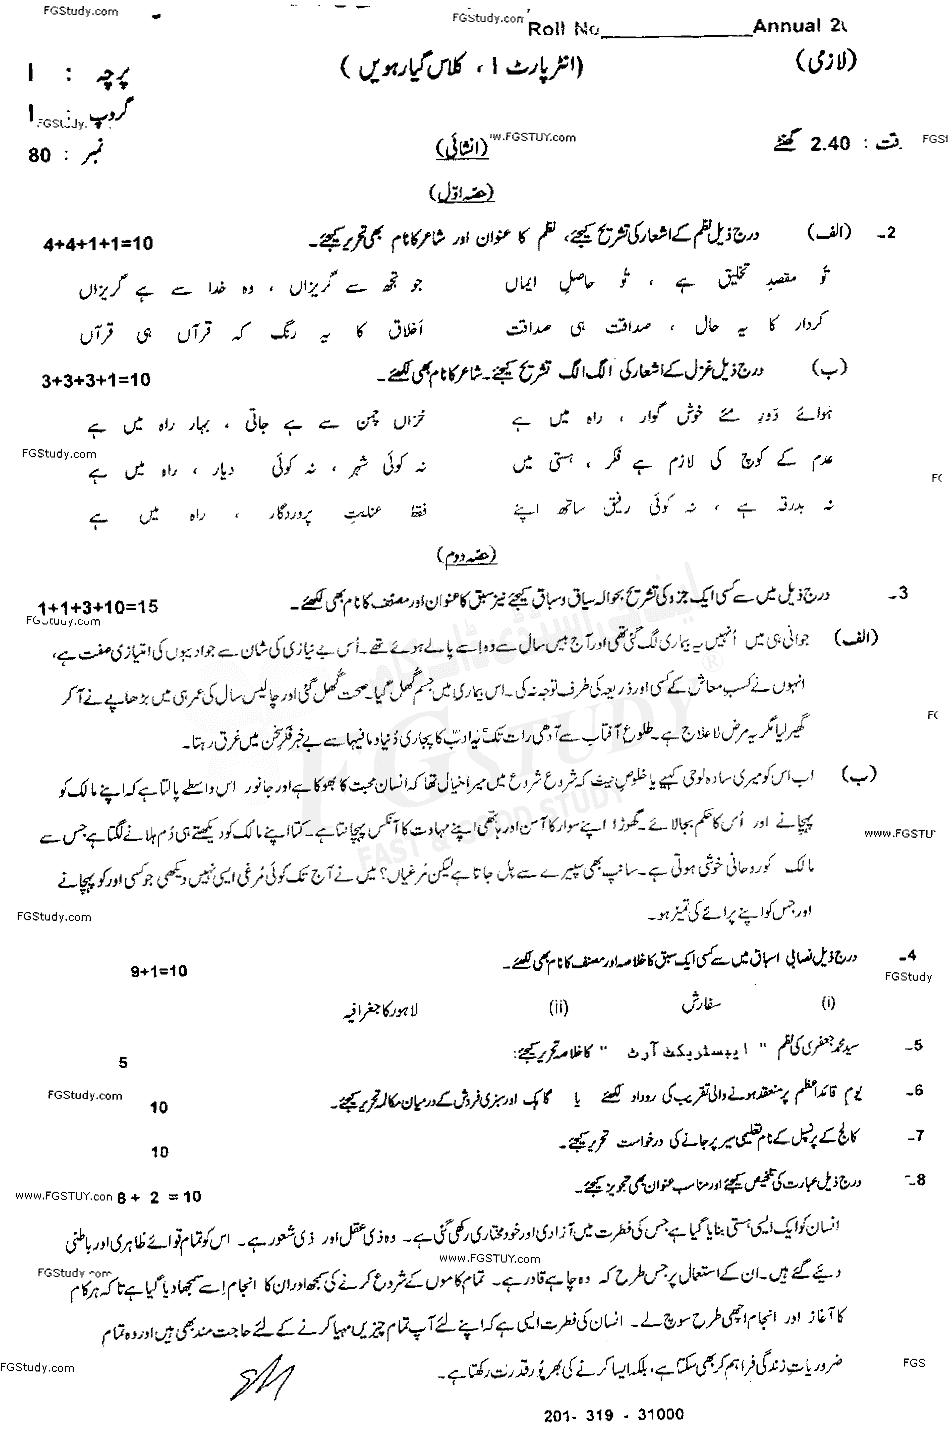 FGStudy.com FGStudy.com Roll No____________ Annual 20
(لازمی) (انٹرپارٹ 1 ، کلاس گیارھویں) پرچہ : I
گروپ : I
FGStudy.
وقت : 2.40 گھنٹے www.FGSTUY.com (انشائی) نمبر : 80
(حصّہ اوّل)
2۔ (الف) درج ذیل نظم کے اشعار کی تشریح کیجئے، نظم کا عنوان اور شاعر کا نام بھی تحریر کیجئے۔ 4+4+1+1=10
تُو مقصدِ تخلیق ہے ، تُو حاصلِ ایماں جو تجھ سے گریزاں ، وہ خدا سے ہے گریزاں
کردار کا یہ حال ، صداقت ہی صداقت اَخلاق کا یہ رنگ کہ قرآں ہی قرآں
(ب) درج ذیل غزل کے اشعار کی الگ الگ تشریح کیجئے۔ شاعر کا نام بھی لکھئے۔ 3+3+3+1=10
ہوائے دَورِ مئے خوش گوار ، راہ میں ہے خزاں چمن سے ہے جاتی ، بہار راہ میں ہے
عدم کے کوچ کی لازم ہے فکر ، ہستی میں نہ کوئی شہر ، نہ کوئی دیار ، راہ میں ہے
FGStudy.com
نہ بدرقہ ہے ، نہ کوئی رفیق ساتھ اپنے فقط عنایتِ پروردگار ، راہ میں ہے
(حصّہ دوم)
3۔ درج ذیل میں سے کسی ایک جزو کی تشریح بحوالہ سیاق و سباق کیجئے نیز سبق کا عنوان اور مصنف کا نام بھی لکھئے۔ 1+1+3+10=15
FGStudy.com
(الف) جوانی ہی میں اُنہیں یہ بیماری لگ گئی تھی اور آج بیس سال سے وہ اسے پالے ہوئے تھے۔ اُس بے نیازی کی شان سے جو ادیبوں کی امتیازی صفت ہے،
انہوں نے کسبِ معاش کے کسی اور ذریعہ کی طرف توجہ نہ کی۔ اس بیماری میں جسم گھل گیا۔ صحت گھل گئی اور چالیس سال کی عمر ہی میں بڑھاپے نے آ کر
گھیر لیا مگر یہ مرض لاعلاج ہے۔ طلوع آفتاب سے آدھی رات تک یہ ادب کا پجاری دُنیا و مافیہا سے بے خبر فکرِ سخن میں غرق رہتا۔
(ب) اب اس کو میری سادہ لوحی کہیے یا خلوصِ نیت کہ شروع شروع میں میرا خیال تھا کہ انسان محبت کا بھوکا ہے اور جانور اس واسطے پالتا ہے کہ اپنے مالک کو
پہچانے اور اُس کا حکم بجا لائے۔ گھوڑا اپنے سوار کا آسن اور ہاتھی اپنے مہاوت کا آنکس پہچانتا ہے۔ کتا اپنے مالک کو دیکھتے ہی دُم ہلانے لگتا ہے جس سے
www.FGSTU
مالک کو روحانی خوشی ہوتی ہے۔ سانپ بھی سپیرے سے ہل جاتا ہے لیکن مُرغیاں؟ میں نے آج تک کوئی مُرغی ایسی نہیں دیکھی جو کسی اور کو پہچانے
اور جس کو اپنے پرائے کی تمیز ہو۔
FGStudy.com
4۔ درج ذیل نصابی اسباق میں سے کسی ایک سبق کا خلاصہ اور مصنف کا نام بھی لکھئے۔ 9+1=10
FGStudy
(i) سفارش (ii) لاہور کا جغرافیہ
5۔ سید محمد جعفری کی نظم " ایبسٹریکٹ آرٹ " کا خلاصہ تحریر کیجئے: 5
6۔ یومِ قائداعظم پر منعقد ہونے والی تقریب کی روداد لکھئے یا گاہک اور سبزی فروش کے درمیان مکالمہ تحریر کیجئے۔ 10
FGStudy.com
7۔ کالج کے پرنسپل کے نام تعلیمی سیر پر جانے کی درخواست تحریر کیجئے۔ 10
8۔ درج ذیل عبارت کی تلخیص کیجئے اور مناسب عنوان بھی تجویز کیجئے۔ 8 + 2 = 10
www.FGSTUY.con
انسان کو ایک ایسی ہستی بنایا گیا ہے جس کی فطرت میں آزادی اور خود مختاری رکھی گئی ہے۔ وہ ذی عقل اور ذی شعور ہے۔ اس کو تمام قوائے ظاہری اور باطنی
www.FGSTUY.com
دیئے گئے ہیں۔ ان کے استعمال پر جس طرح کہ وہ چاہے قادر ہے۔ تمام کاموں کے شروع کرنے کی سمجھ اور ان کا انجام اِسے سمجھا دیا گیا ہے تاکہ ہر کام
FGStudy.com
کا آغاز اور انجام اچھی طرح سوچ لے۔ انسان کی فطرت ایسی ہے کہ اپنے لئے آپ تمام چیزیں مہیا کرنے کے لئے حاجت مند بھی ہیں اور وہ تمام
ضروریاتِ زندگی فراہم کر بھی سکتا ہے، بلکہ ایسا کرنے کی بھرپور قدرت رکھتا ہے۔
FGStudy.com FGS
201- 319 - 31000
FGSTUDY
FAST & GOOD STUDY